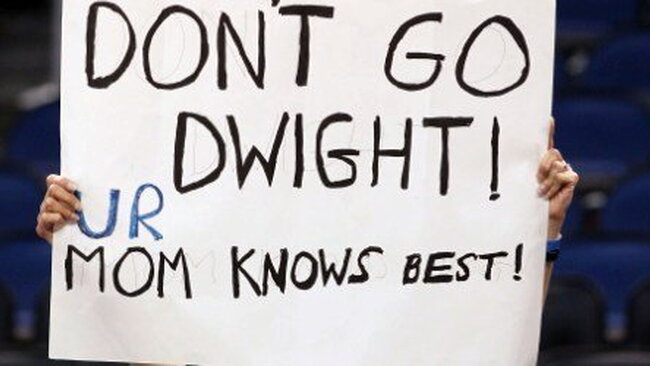 DON'T GO
DWIGHT!
UR
MOM KNOWS BEST!